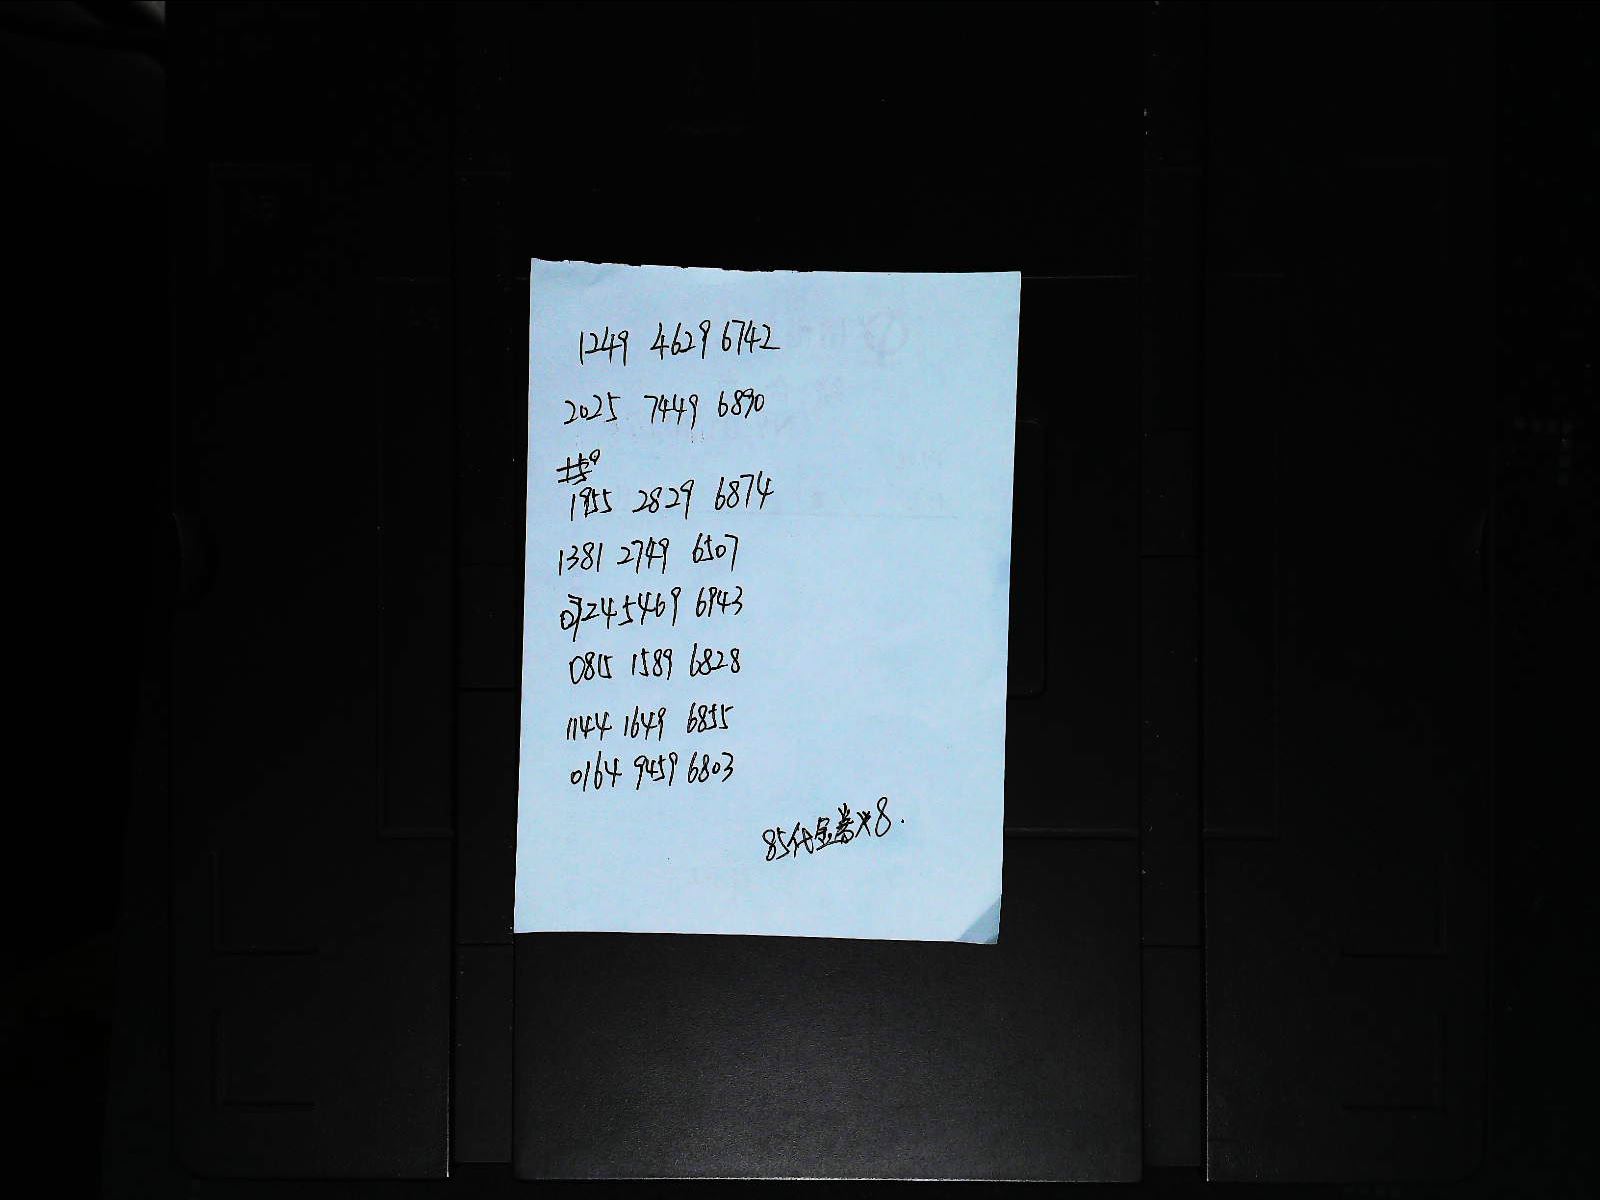 1249 4629 6742
2025 7449 6890
1955 2829 6874
1381 2749 6507
5469 6943
0815 1589 6828
1144 1649 6855
0164 9459 6803
85代金券×8.